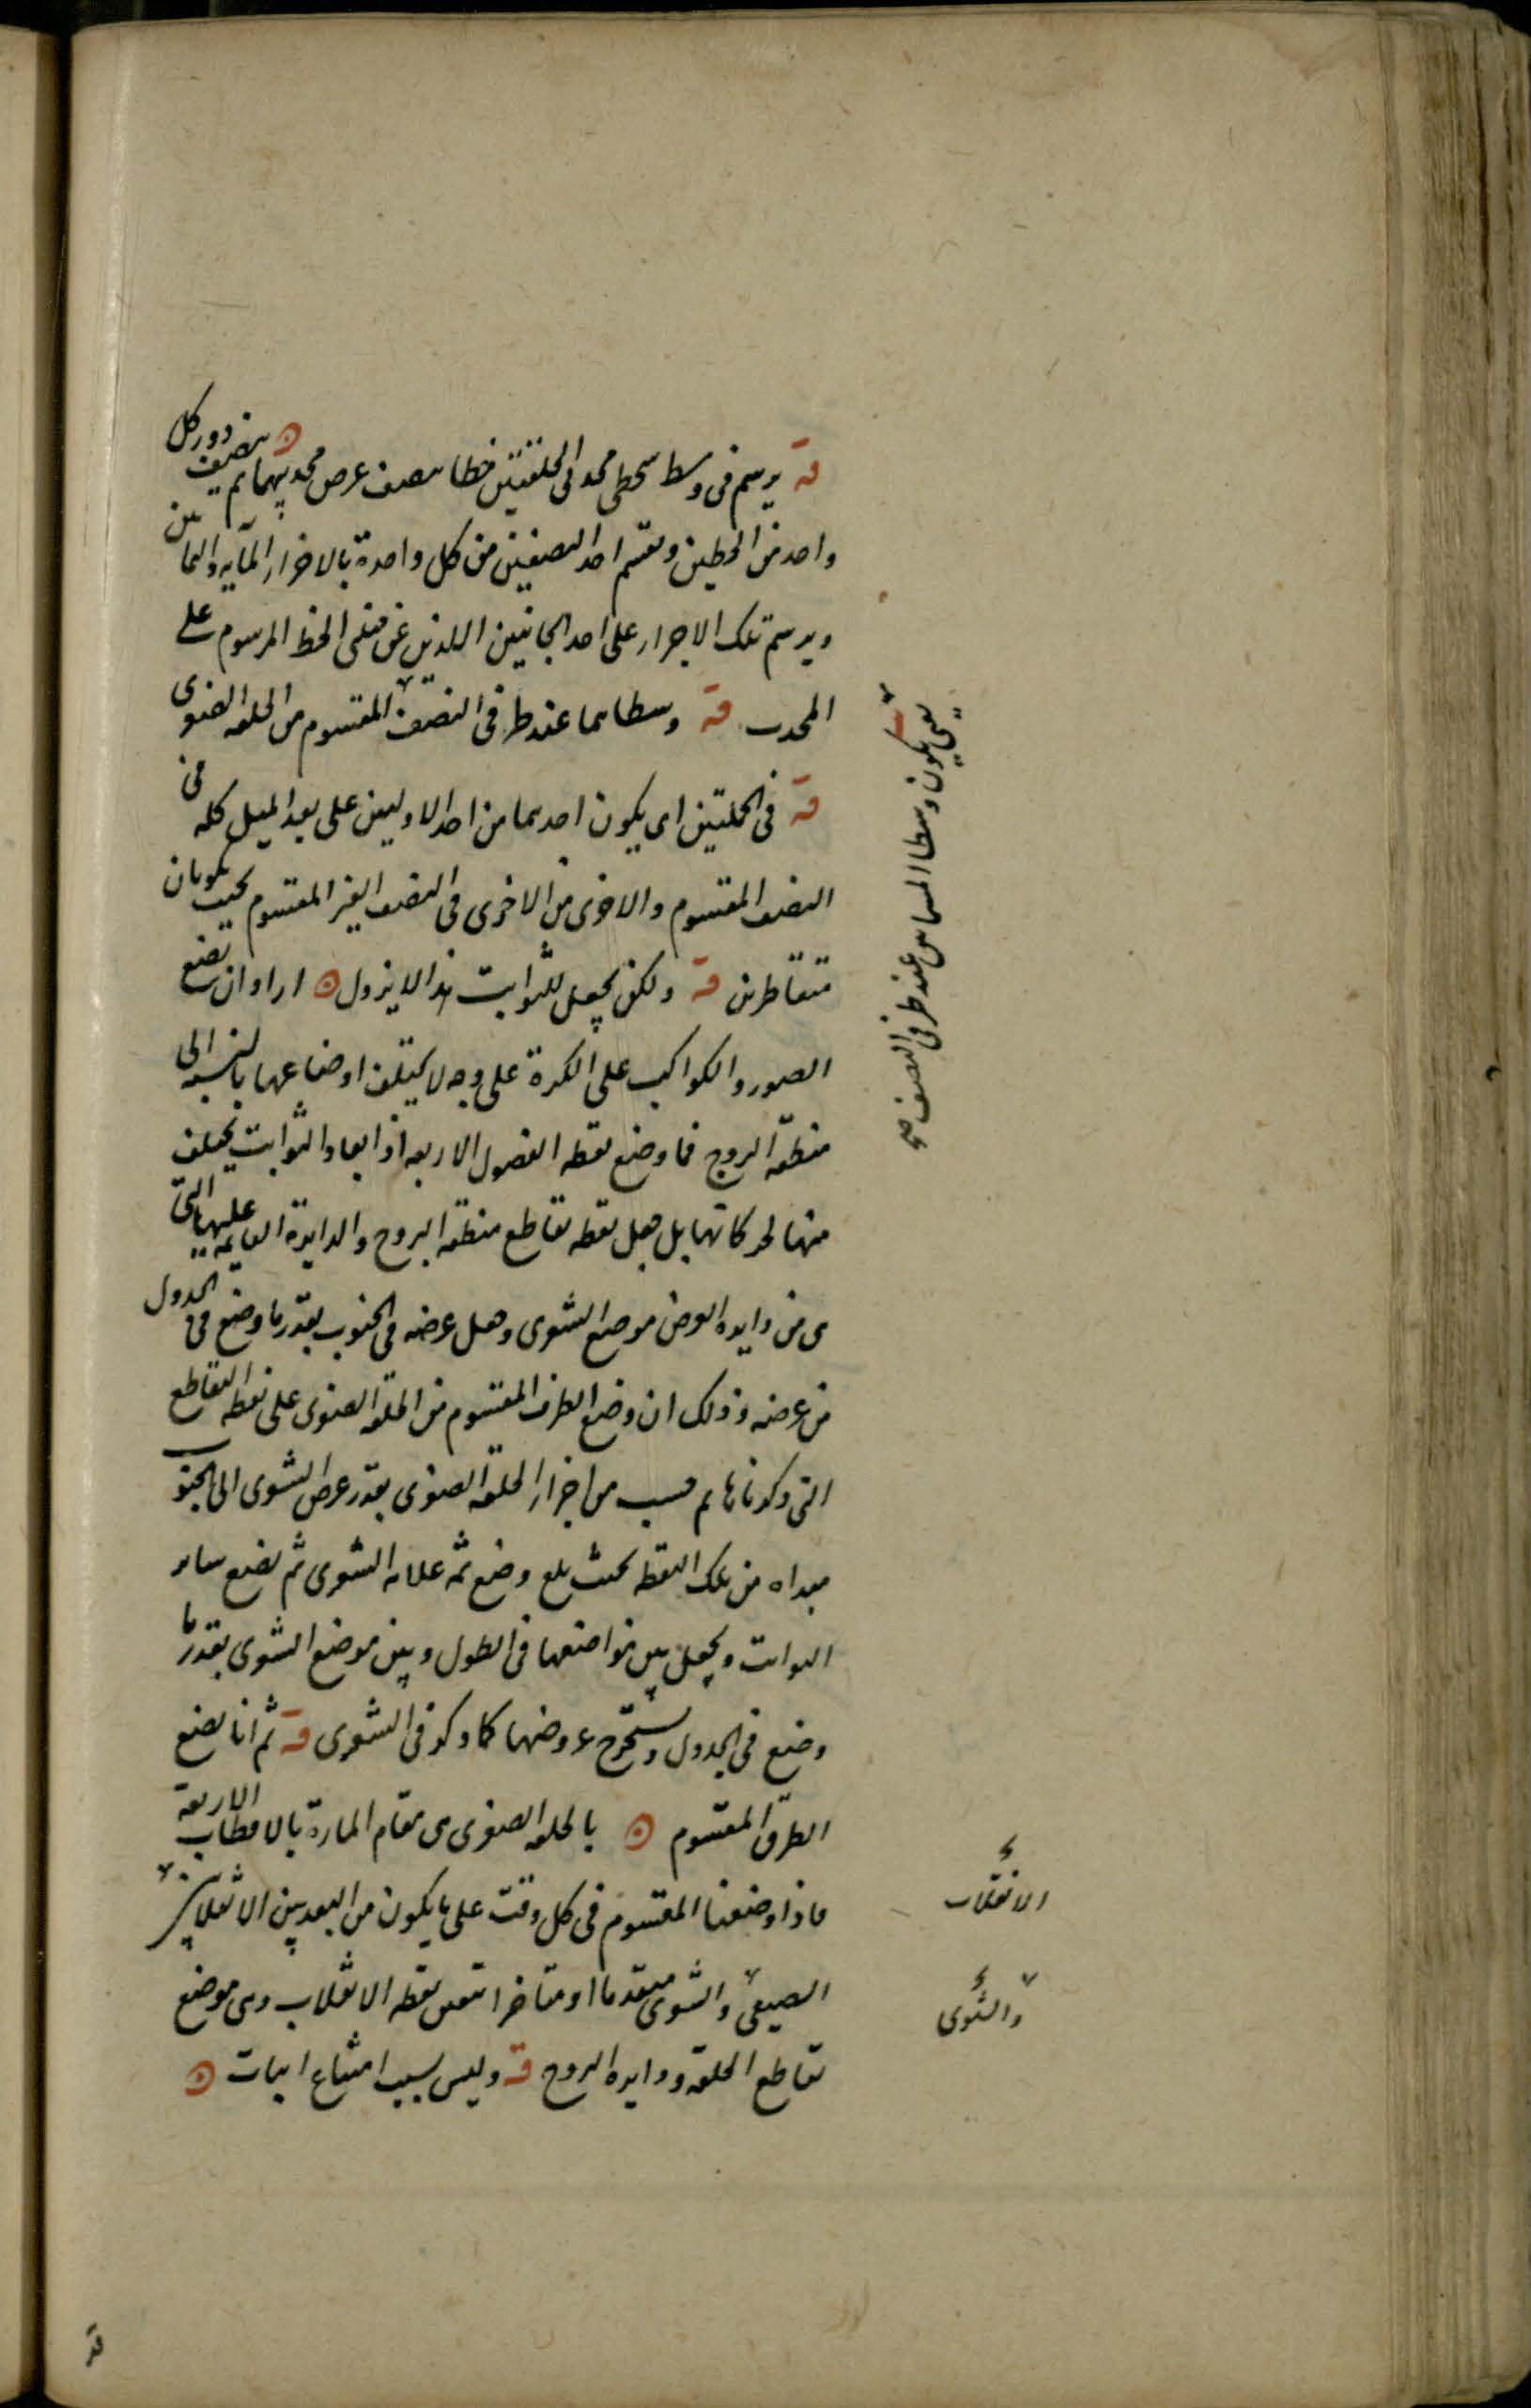 قه يرسم فى وسط سطحى محدبى الحلقتين خطا ينصف عرض محدبيهما ثم ينصف دور كل
واحد من الخطين ويقسم احد النصفين من كل واحدة بالاجزاء المايه والثمانين
ويرسم تلك الاجزاء على احد الجانبين اللذين عن جنبتى الخط المرسوم على
المحدب قه وسطاهما عند طرفى النصف المقسوم من الحلقه الصغرى
قه فى الحلقتين اى يكون احدهما من احد الاوليين على بعد الميل كله فى
النصف المقسوم والاخرى من الاخرى فى النصف الغير المقسوم بحيث يكونان
متقاطرين قه ولكن يجعل للثوابت بدا لا يزول اراد ان يضع
الصور والكواكب على الكرة على وجه لا يختلف اوضاعها بالنسبه الى
منطقه البروج فما وضع نقطه الفصول الاربعه اذ ابعاد الثوابت يختلف
منها لحركاتها بل جعل نقطه تقاطع منطقه البروج والدايرة القايمه عليها التى
هى من دايره العرض موضع الشعرى وجعل عرضه فى الجنوب بقدر ما وضع فى الجدول
من عرضه وذلك ان وضع الطرف المقسوم من الحلقه الصغرى على نقطه التقاطع
التى ذكرناها ثم حسب من اجزاء الحلقه الصغرى بقدر عرض الشعرى الى الجنوب
مبداه من تلك النقطه فحيث بلغ وضع ثمه علامه الشعرى ثم يضع ساير
الثوابت ويجعل بين مواضعها فى الطول وبين موضع الشعرى بقدر ما
وضع فى الجدول ويستخرج عروضها كما ذكر فى الشعرى قه ثم انا نضع
الطرف المقسوم بالحلقه الصغرى هى مقام المارة بالاقطاب الاربعة
فاذا وضعنا المقسوم فى كل وقت على ما يكون من البعد بين الانقلابين
الصيفى والشتوى متقدما او متاخرا تتعين نقطه الانقلاب وهى موضع
تقاطع الحلقه ودايره البروج قه وليس بسبب امتناع اثبات
يعنى يكون وسطا المماس عند طرفى النصف صح
الانقلاب
والشتوى